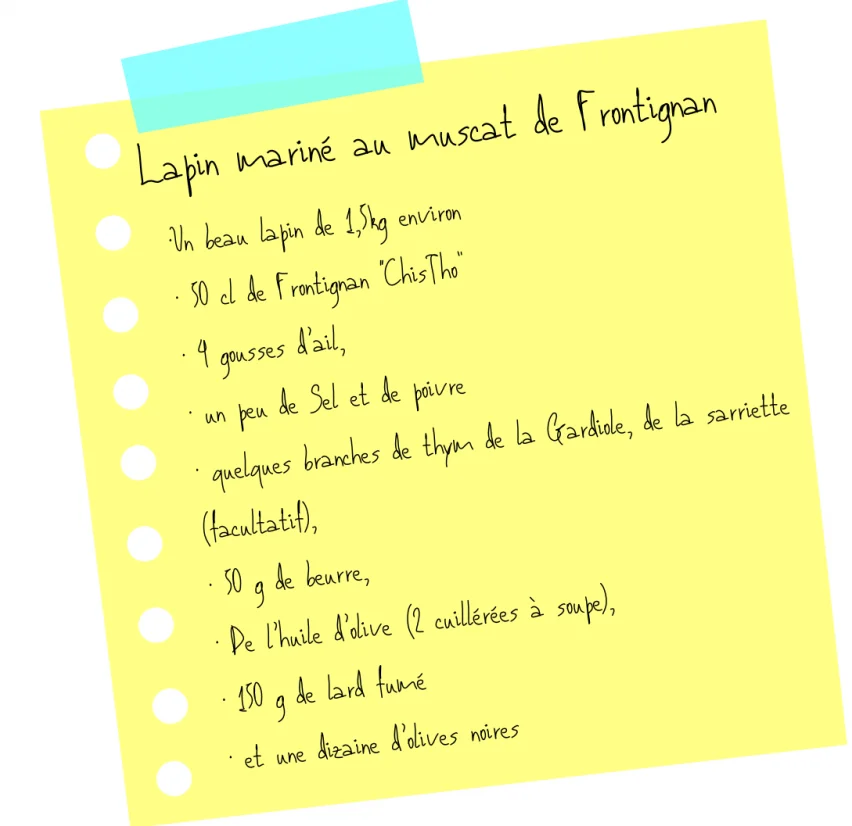 Lapin mariné au muscat de Frontignan
·Un beau lapin de 1,5kg environ
· 50 cl de Frontignan "ChisTho"
· 4 gousses d'ail,
· un peu de Sel et de poivre
· quelques branches de thym de la Gardiole, de la sarriette
(facultatif),
· 50 g de beurre,
· De l'huile d'olive (2 cuillérées à soupe),
· 150 g de lard fumé
· et une dizaine d'olives noires